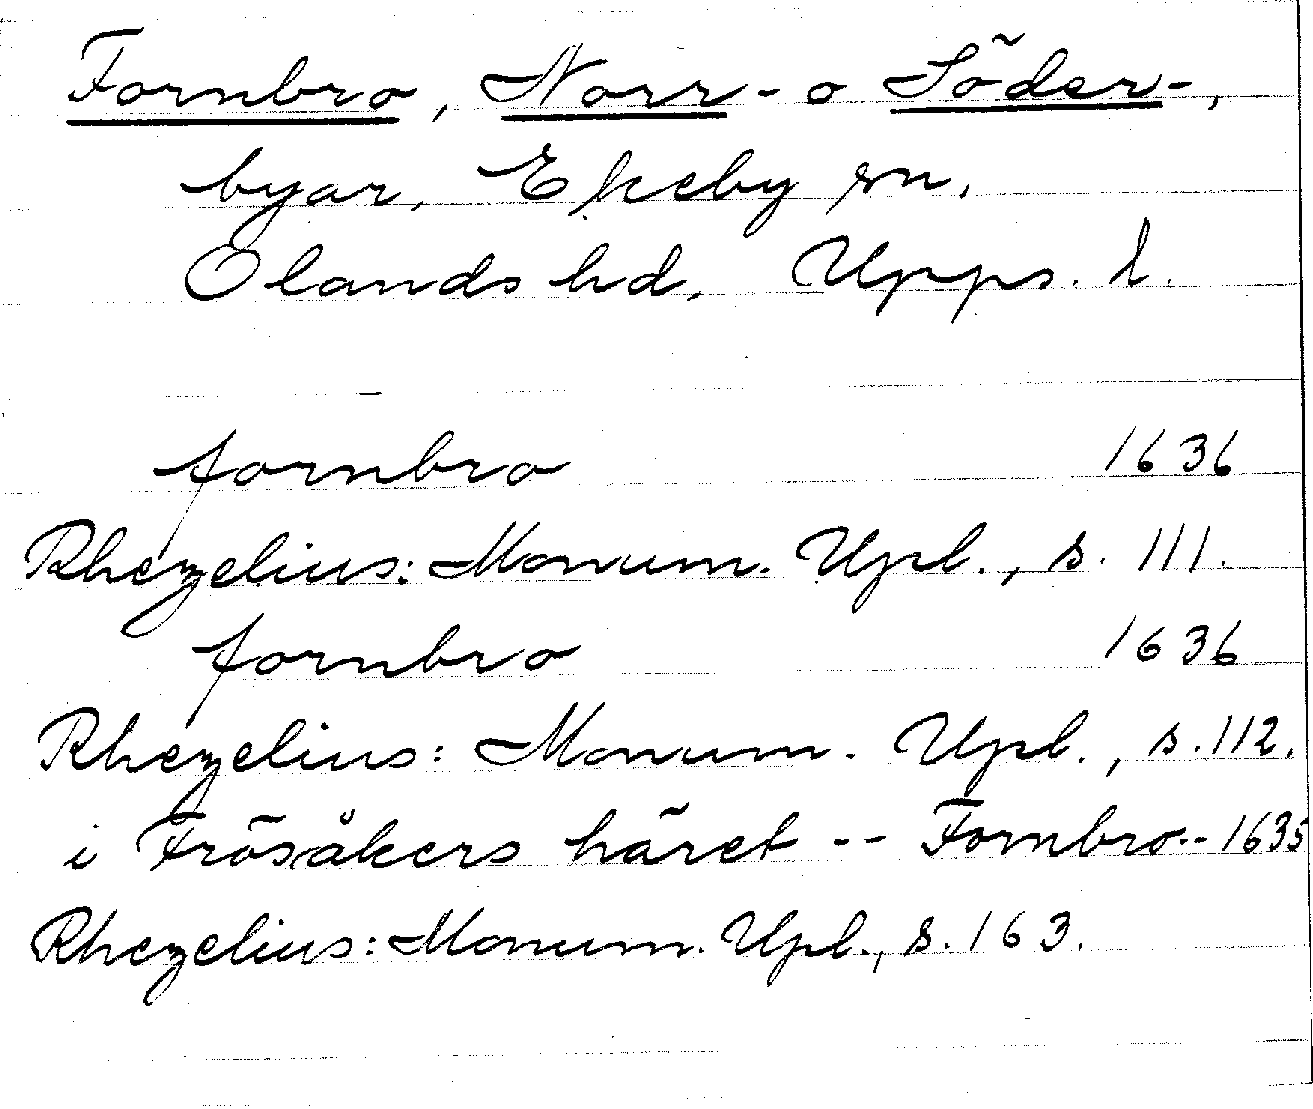 Fornbro, Norr- o Söder-,
byar, Ekeby sn,
Olands hd, Upps. l.
fornbro 1636
Rhezelius: Monum. Upl., s. 111.
fornbro 1636
Rhezelius: Monum. Upl., s. 112.
i Frösåkers häret -- Fornbro -- 1635
Rhezelius: Monum. Upl., s. 163.